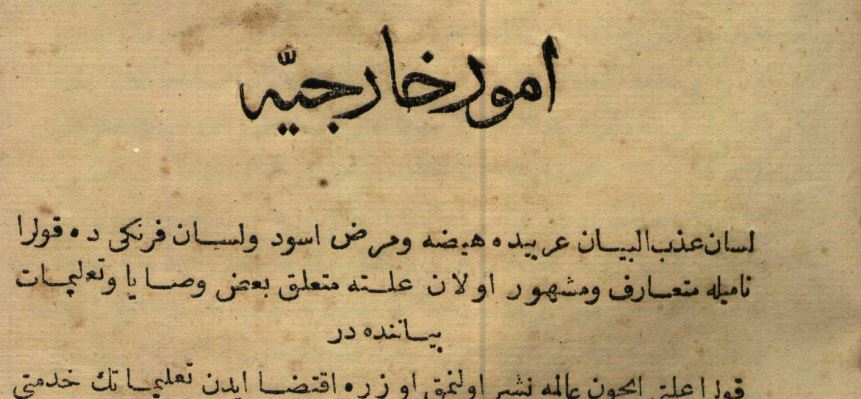 امور خارجيّه
لسان عذب البيان عربيده هيضه ومرض اسود ولسان فرنكى ده قولرا
ناميله متعارف ومشهور اولان علته متعلق بعض وصايا وتعليمات
بياننده در
قولرا علتى ايچون عالمه نشر اولنمق اوزره اقتضا ايدن تعليماتك خدمتى